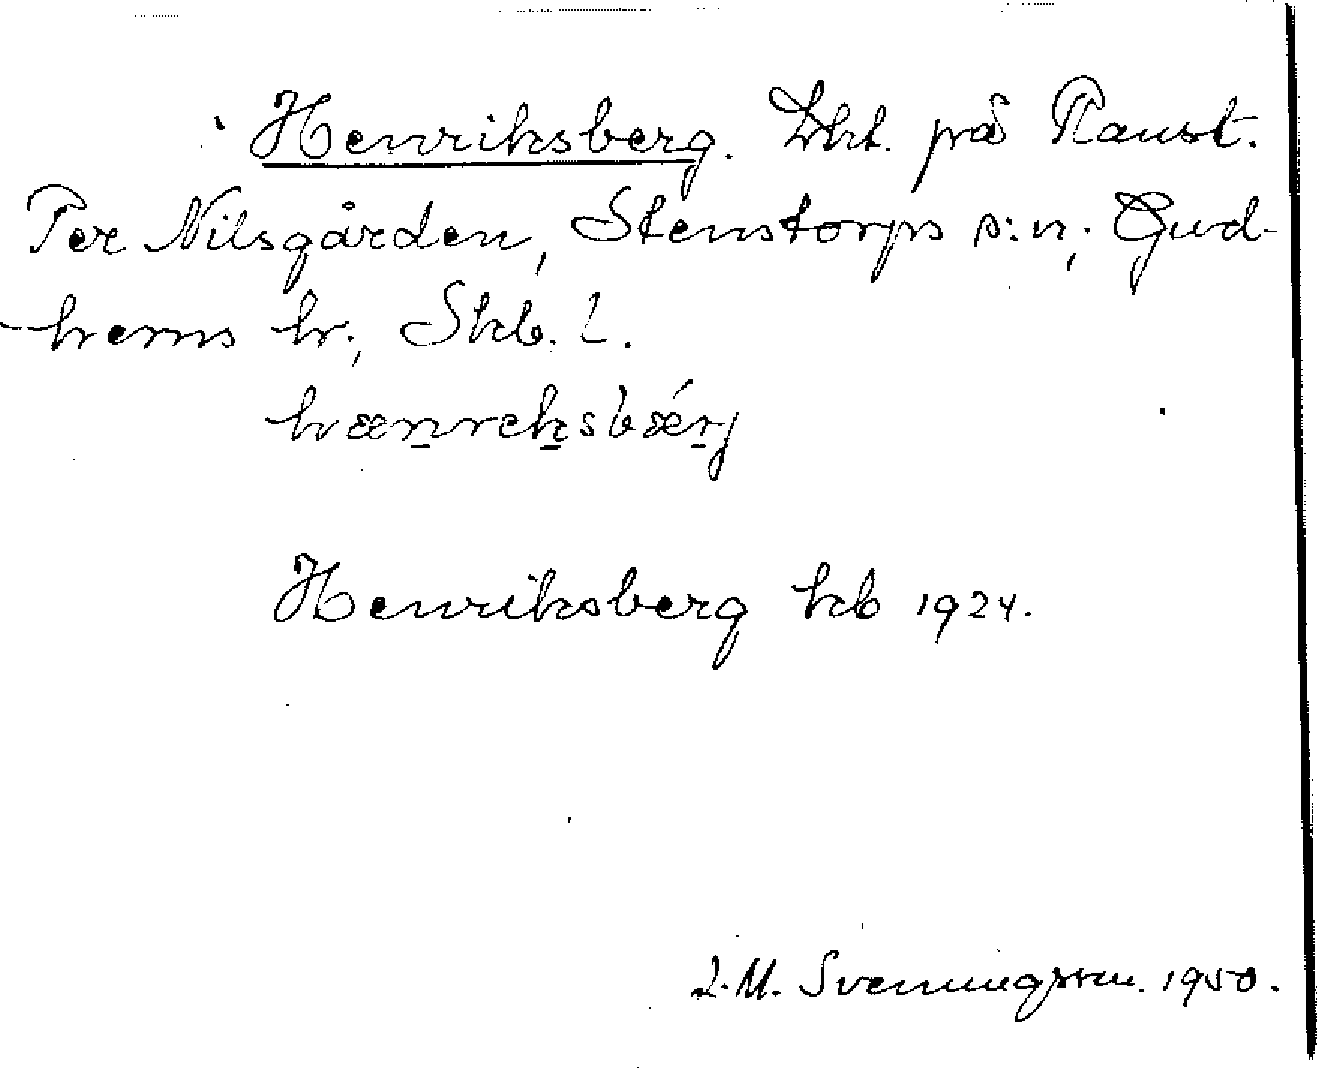 Henriksberg. Lht. på Raust.
Per Nilsgården, Stenstorps s:n, Gud-
hems hr., Skb. l.
hænreksbærj
Henriksberg kb 1924.
L.M. Svenningsson. 1950.